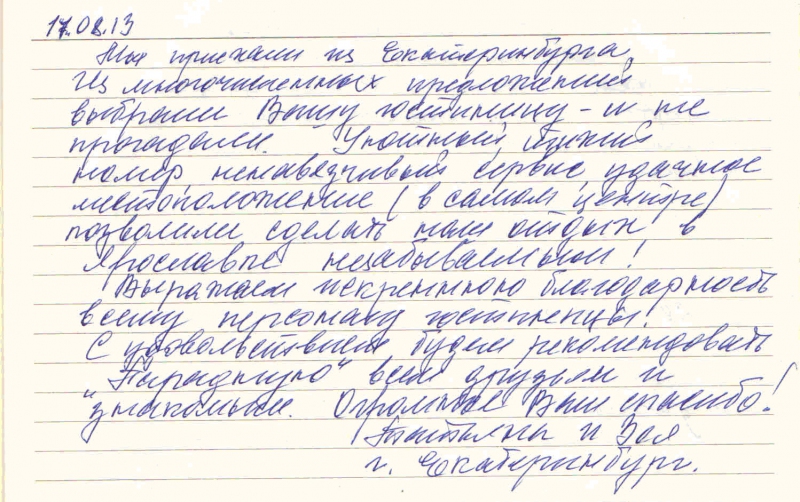 17.08.13
Мы приехали из Екатеринбурга.
Из многочисленных предложений
выбрали Вашу гостиницу - и не
прогадали. Уютный, тихий
номер, ненавязчивый сервис, удачное
местоположение (в самом центре)
позволили сделать наш отдых в
Ярославле незабываемым!
Выражаем искреннюю благодарность
всему персоналу гостиницы.
С удовольствием будем рекомендовать
"Парадную" всем друзьям и
знакомым. Огромное Вам спасибо!
Татьяна и Зоя
г. Екатеринбург.